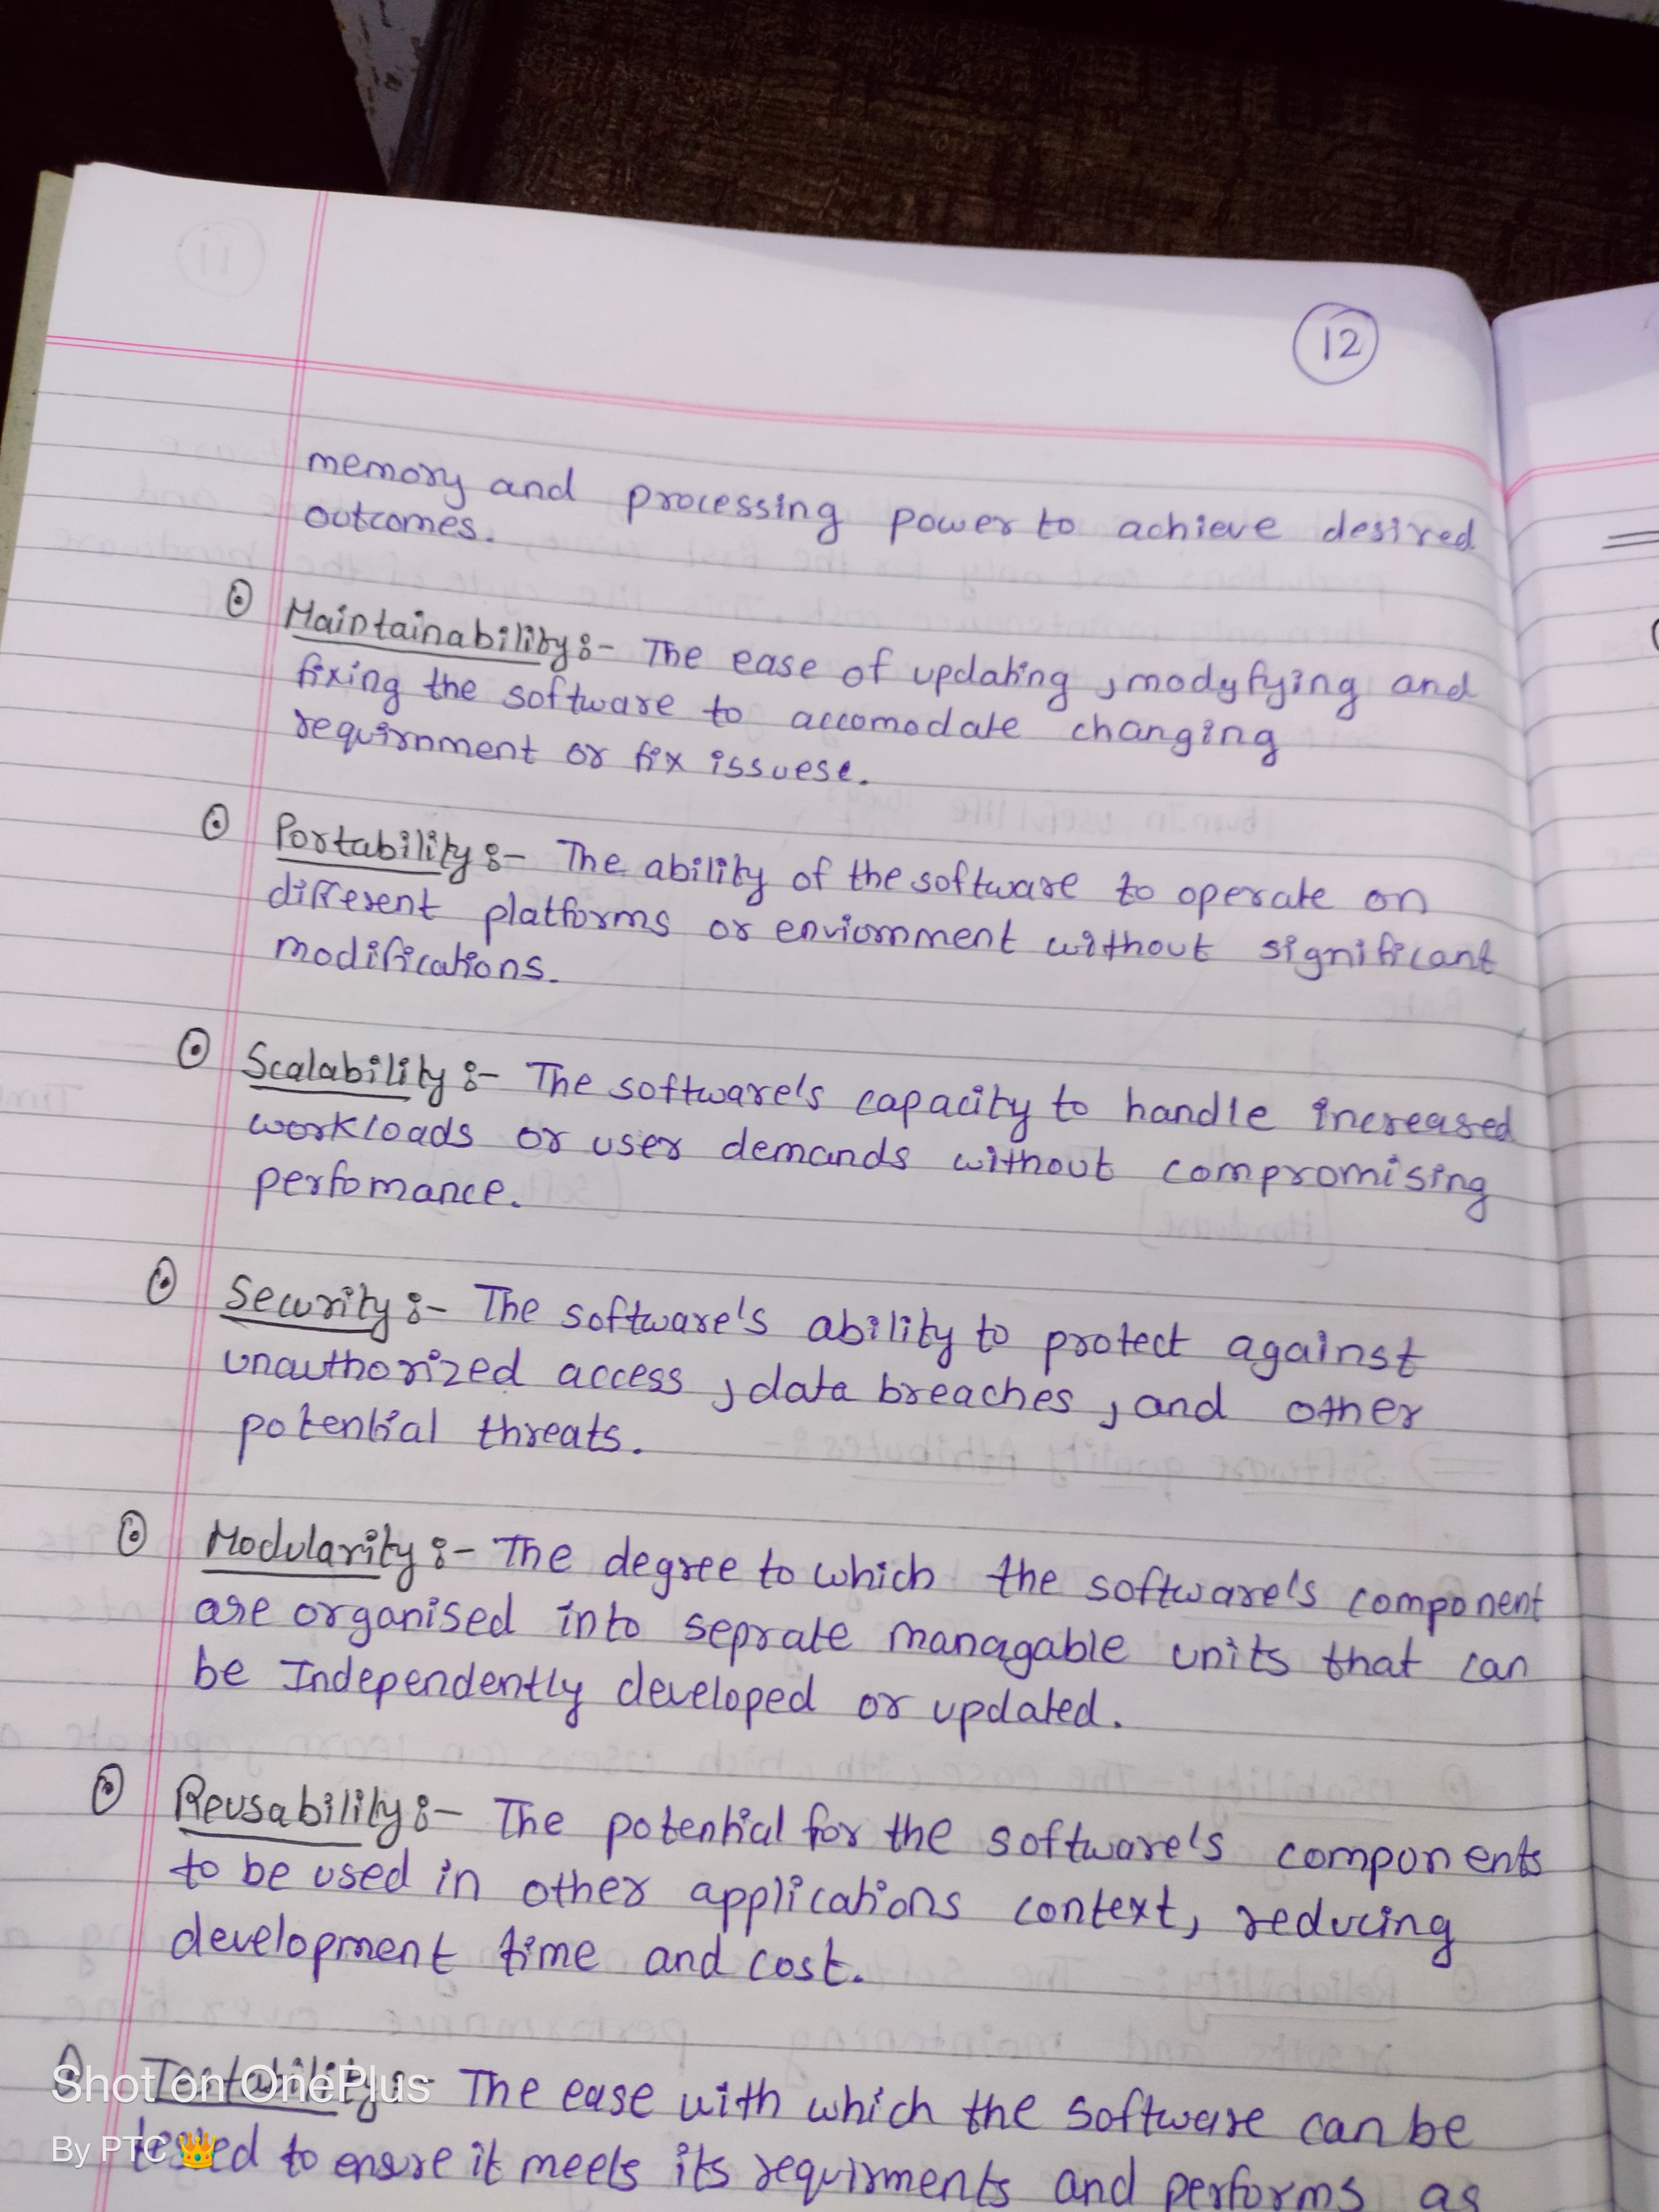 12
memory and processing power to achieve desired
outcomes.
Maintainability :- The ease of updating , modyfying and
fixing the software to accomodate changing
requirnment or fix issuese.
Portability :- The ability of the software to operate on
different platforms or enviornment without significant
modifications.
Scalability :- The software's capacity to handle increased
workloads or user demands without compromising
perfomance.
Security :- The software's ability to protect against
unauthorized access , data breaches , and other
potential threats.
Modularity :- The degree to which the software's component
are organised into seprate managable units that can
be Independently developed or updated.
Reusability :- The potential for the software's components
to be used in other applications context, reducing
development time and cost.
Testability :- The ease with which the software can be
tested to ensre it meets its requirments and performs as
Shot on OnePlus
By PTC👑